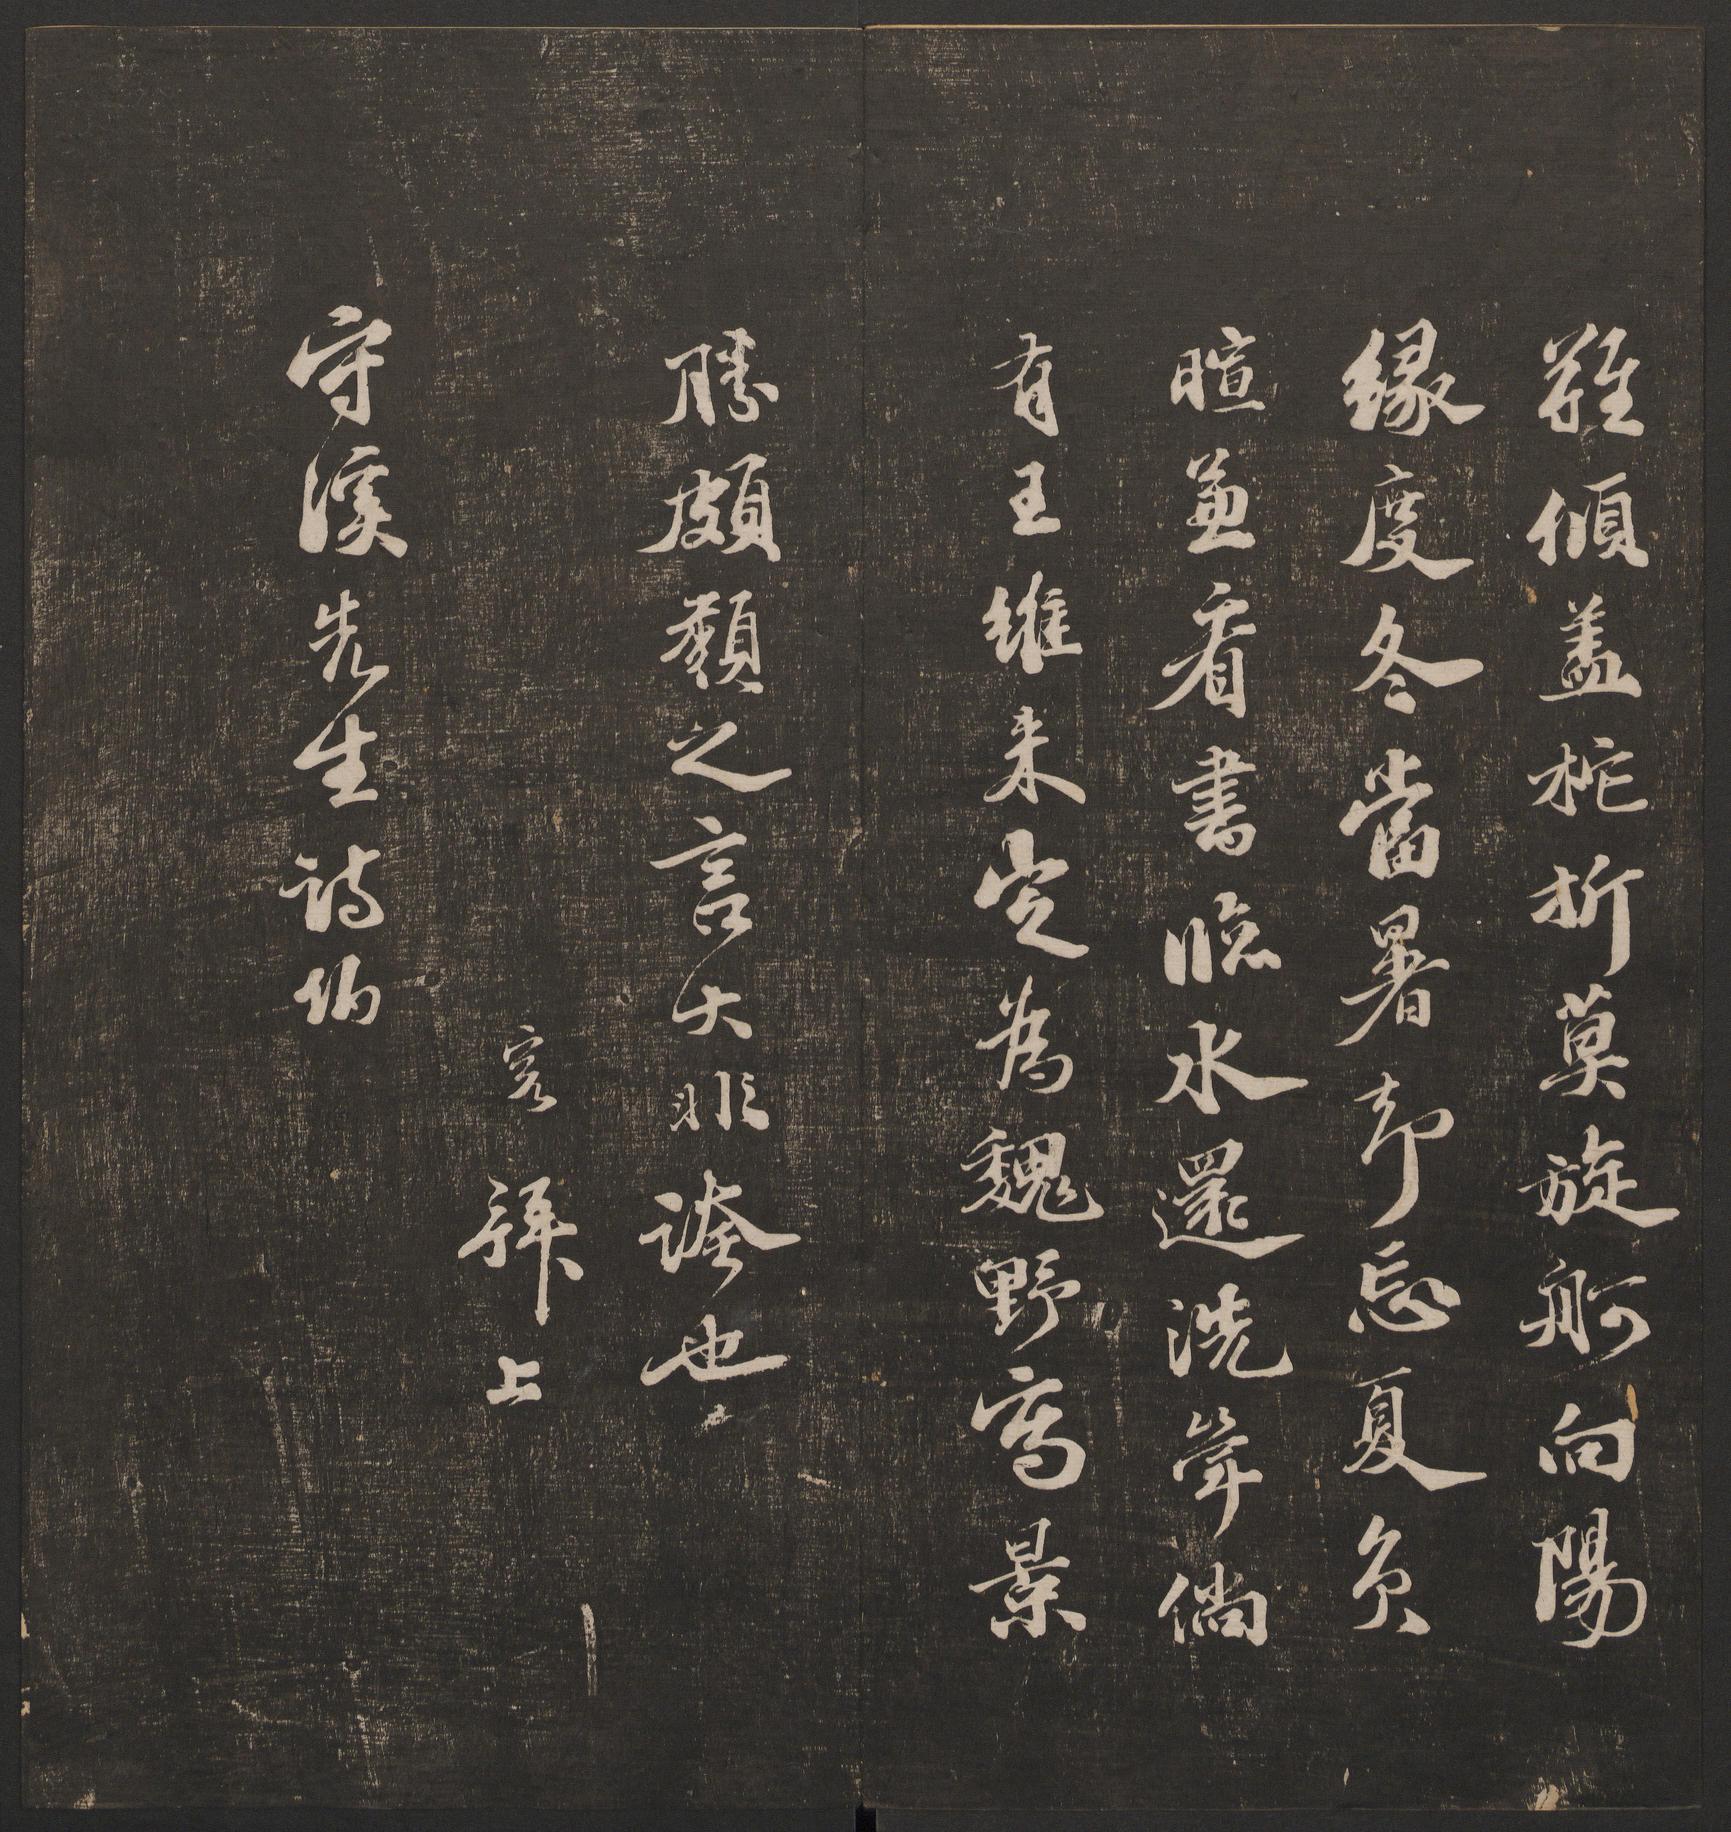 難傾盖柁折莫旋舸向陽
緣度冬當暑却忘夏負
暄兼看書臨水還洗斝倘
有王維来定為魏野寫景
勝頗類之言大非誇也
寬拜上
守溪先生詩伯